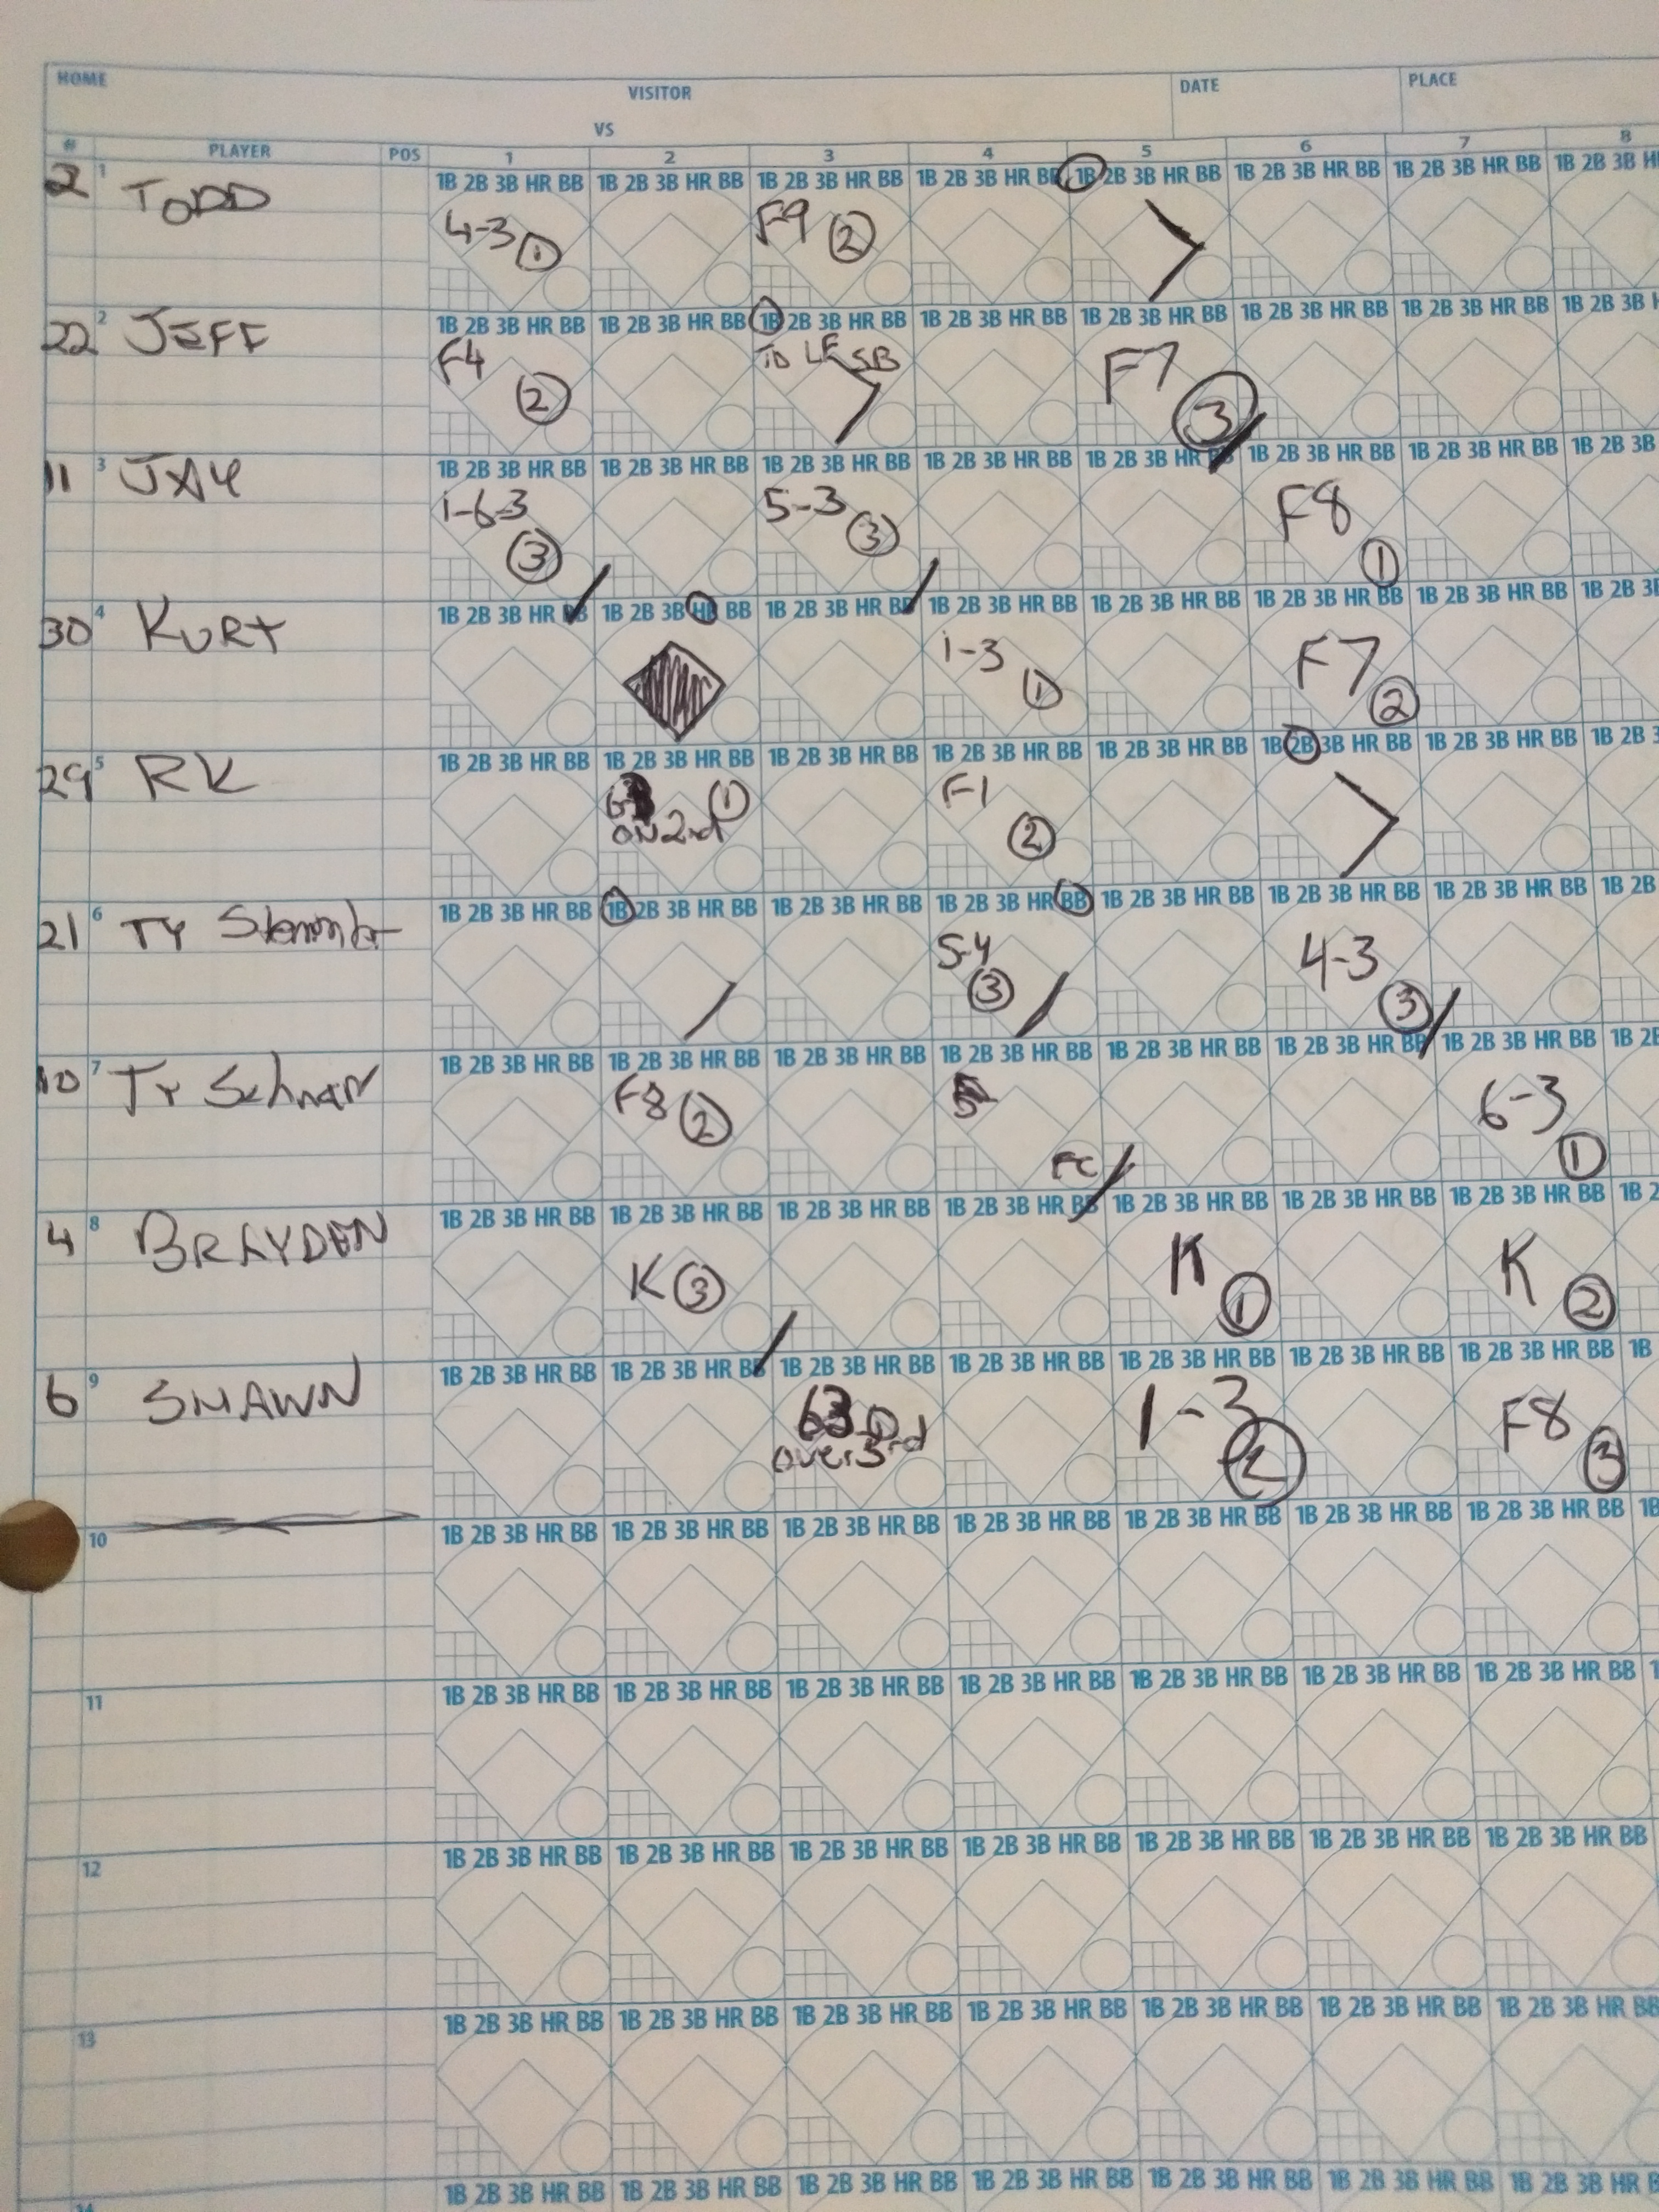 HOME VISITOR DATE PLACE
VS
# PLAYER POS 1 2 3 4 5 6 7 8
1B 2B 3B HR BB 1B 2B 3B HR BB 1B 2B 3B HR BB 1B 2B 3B HR BB 1B 2B 3B HR BB 1B 2B 3B HR BB 1B 2B 3B HR BB 1B 2B 3B H
2 1 TODD 4-3 1 F9 2
1B 2B 3B HR BB 1B 2B 3B HR BB 1B 2B 3B HR BB 1B 2B 3B HR BB 1B 2B 3B HR BB 1B 2B 3B HR BB 1B 2B 3B HR BB 1B 2B 3B
22 2 JEFF F4 2 TO LF SB F7 3
1B 2B 3B HR BB 1B 2B 3B HR BB 1B 2B 3B HR BB 1B 2B 3B HR BB 1B 2B 3B HR 1B 2B 3B HR BB 1B 2B 3B HR BB 1B 2B 3B
11 3 JAY 1-6-3 3 5-3 3 F8 1
1B 2B 3B HR BB 1B 2B 3B HR BB 1B 2B 3B HR BB 1B 2B 3B HR BB 1B 2B 3B HR BB 1B 2B 3B HR BB 1B 2B 3B HR BB 1B 2B 3
30 4 KURT 1-3 1 F7 2
1B 2B 3B HR BB 1B 2B 3B HR BB 1B 2B 3B HR BB 1B 2B 3B HR BB 1B 2B 3B HR BB 1B 2B 3B HR BB 1B 2B 3B HR BB 1B 2B 3
29 5 RK 1 F1 2
ON 2nd
1B 2B 3B HR BB 1B 2B 3B HR BB 1B 2B 3B HR BB 1B 2B 3B HR BB 1B 2B 3B HR BB 1B 2B 3B HR BB 1B 2B 3B HR BB 1B 2B
21 6 TY 5-4 3 4-3 3
1B 2B 3B HR BB 1B 2B 3B HR BB 1B 2B 3B HR BB 1B 2B 3B HR BB 1B 2B 3B HR BB 1B 2B 3B HR BB 1B 2B 3B HR BB
10 7 TY F8 2 6-3 1
FC
1B 2B 3B HR BB 1B 2B 3B HR BB 1B 2B 3B HR BB 1B 2B 3B HR BB 1B 2B 3B HR BB 1B 2B 3B HR BB 1B 2B 3B HR BB
4 8 BRAYDEN K 3 K 1 K 2
1B 2B 3B HR BB 1B 2B 3B HR BB 1B 2B 3B HR BB 1B 2B 3B HR BB 1B 2B 3B HR BB 1B 2B 3B HR BB 1B 2B 3B HR BB 1B
6 9 SHAWN 63 1 1-3 2 F8 3
over 3rd
10 1B 2B 3B HR BB 1B 2B 3B HR BB 1B 2B 3B HR BB 1B 2B 3B HR BB 1B 2B 3B HR BB 1B 2B 3B HR BB 1B 2B 3B HR BB 1B
11 1B 2B 3B HR BB 1B 2B 3B HR BB 1B 2B 3B HR BB 1B 2B 3B HR BB 1B 2B 3B HR BB 1B 2B 3B HR BB 1B 2B 3B HR BB
12 1B 2B 3B HR BB 1B 2B 3B HR BB 1B 2B 3B HR BB 1B 2B 3B HR BB 1B 2B 3B HR BB 1B 2B 3B HR BB 1B 2B 3B HR BB
13 1B 2B 3B HR BB 1B 2B 3B HR BB 1B 2B 3B HR BB 1B 2B 3B HR BB 1B 2B 3B HR BB 1B 2B 3B HR BB 1B 2B 3B HR BB
1B 2B 3B HR BB 1B 2B 3B HR BB 1B 2B 3B HR BB 1B 2B 3B HR BB 1B 2B 3B HR BB 1B 2B 3B HR BB 1B 2B 3B HR